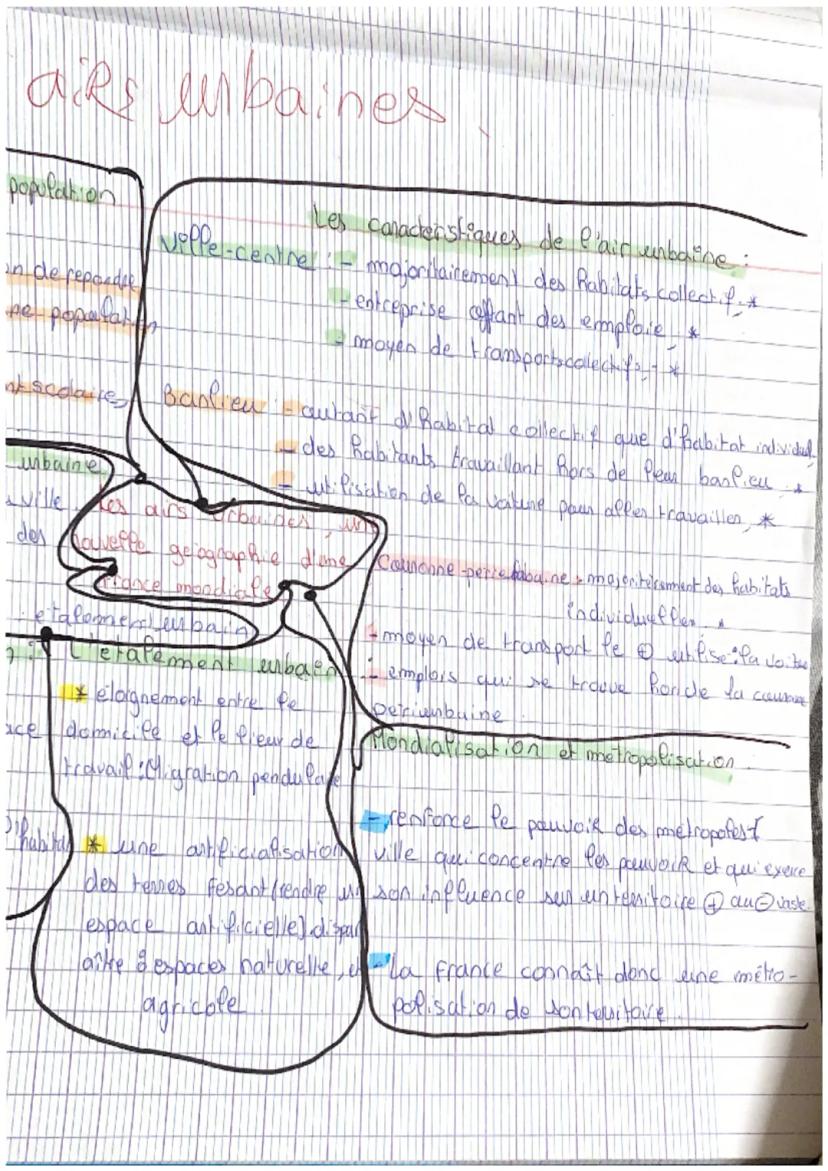 aiRs urbaines.
population
on de repondre
ne population
nt scolaire
Les caracteristiques de l'air urbaine :
ville-centre : - majoritairement des habitats collectif, *
- entreprise offrant des emploie, *
- moyen de transports collectifs, *
Banlieu : - autant d'habitat collectif que d'habitat individuel
- des habitants travaillant hors de leur banlieu *
- utilisation de la voiture pour aller travailler, *
urbaine
ville
des
Les airs urbaines, un
nouvelle geographie d'une
France mondiale
etalement urbain
Couronne-perieubaine : majoritèrement des habitats
individuelles *
- moyen de transport le ⊕ utilise : la voiture
- emplois qui se trouve hors de la couronne
periurbaine
L'etalement urbain
* éloignement entre le
domicile et le lieux de
travail : Migration pendulaire
* une artificialisation
des terres fesant (rendre un
espace artificielle) dispar
aître 8 espaces naturelle, et
agricole.
ace
D'habitat
Mondialisation et metropolisation.
- renforce le pouvoir des metropoles
ville qui concentre les pouvoir et qui exerce
son influence sur un territoire ⊕ au ⊖ vaste
- La France connaît donc une métro-
polisation de son territoire.